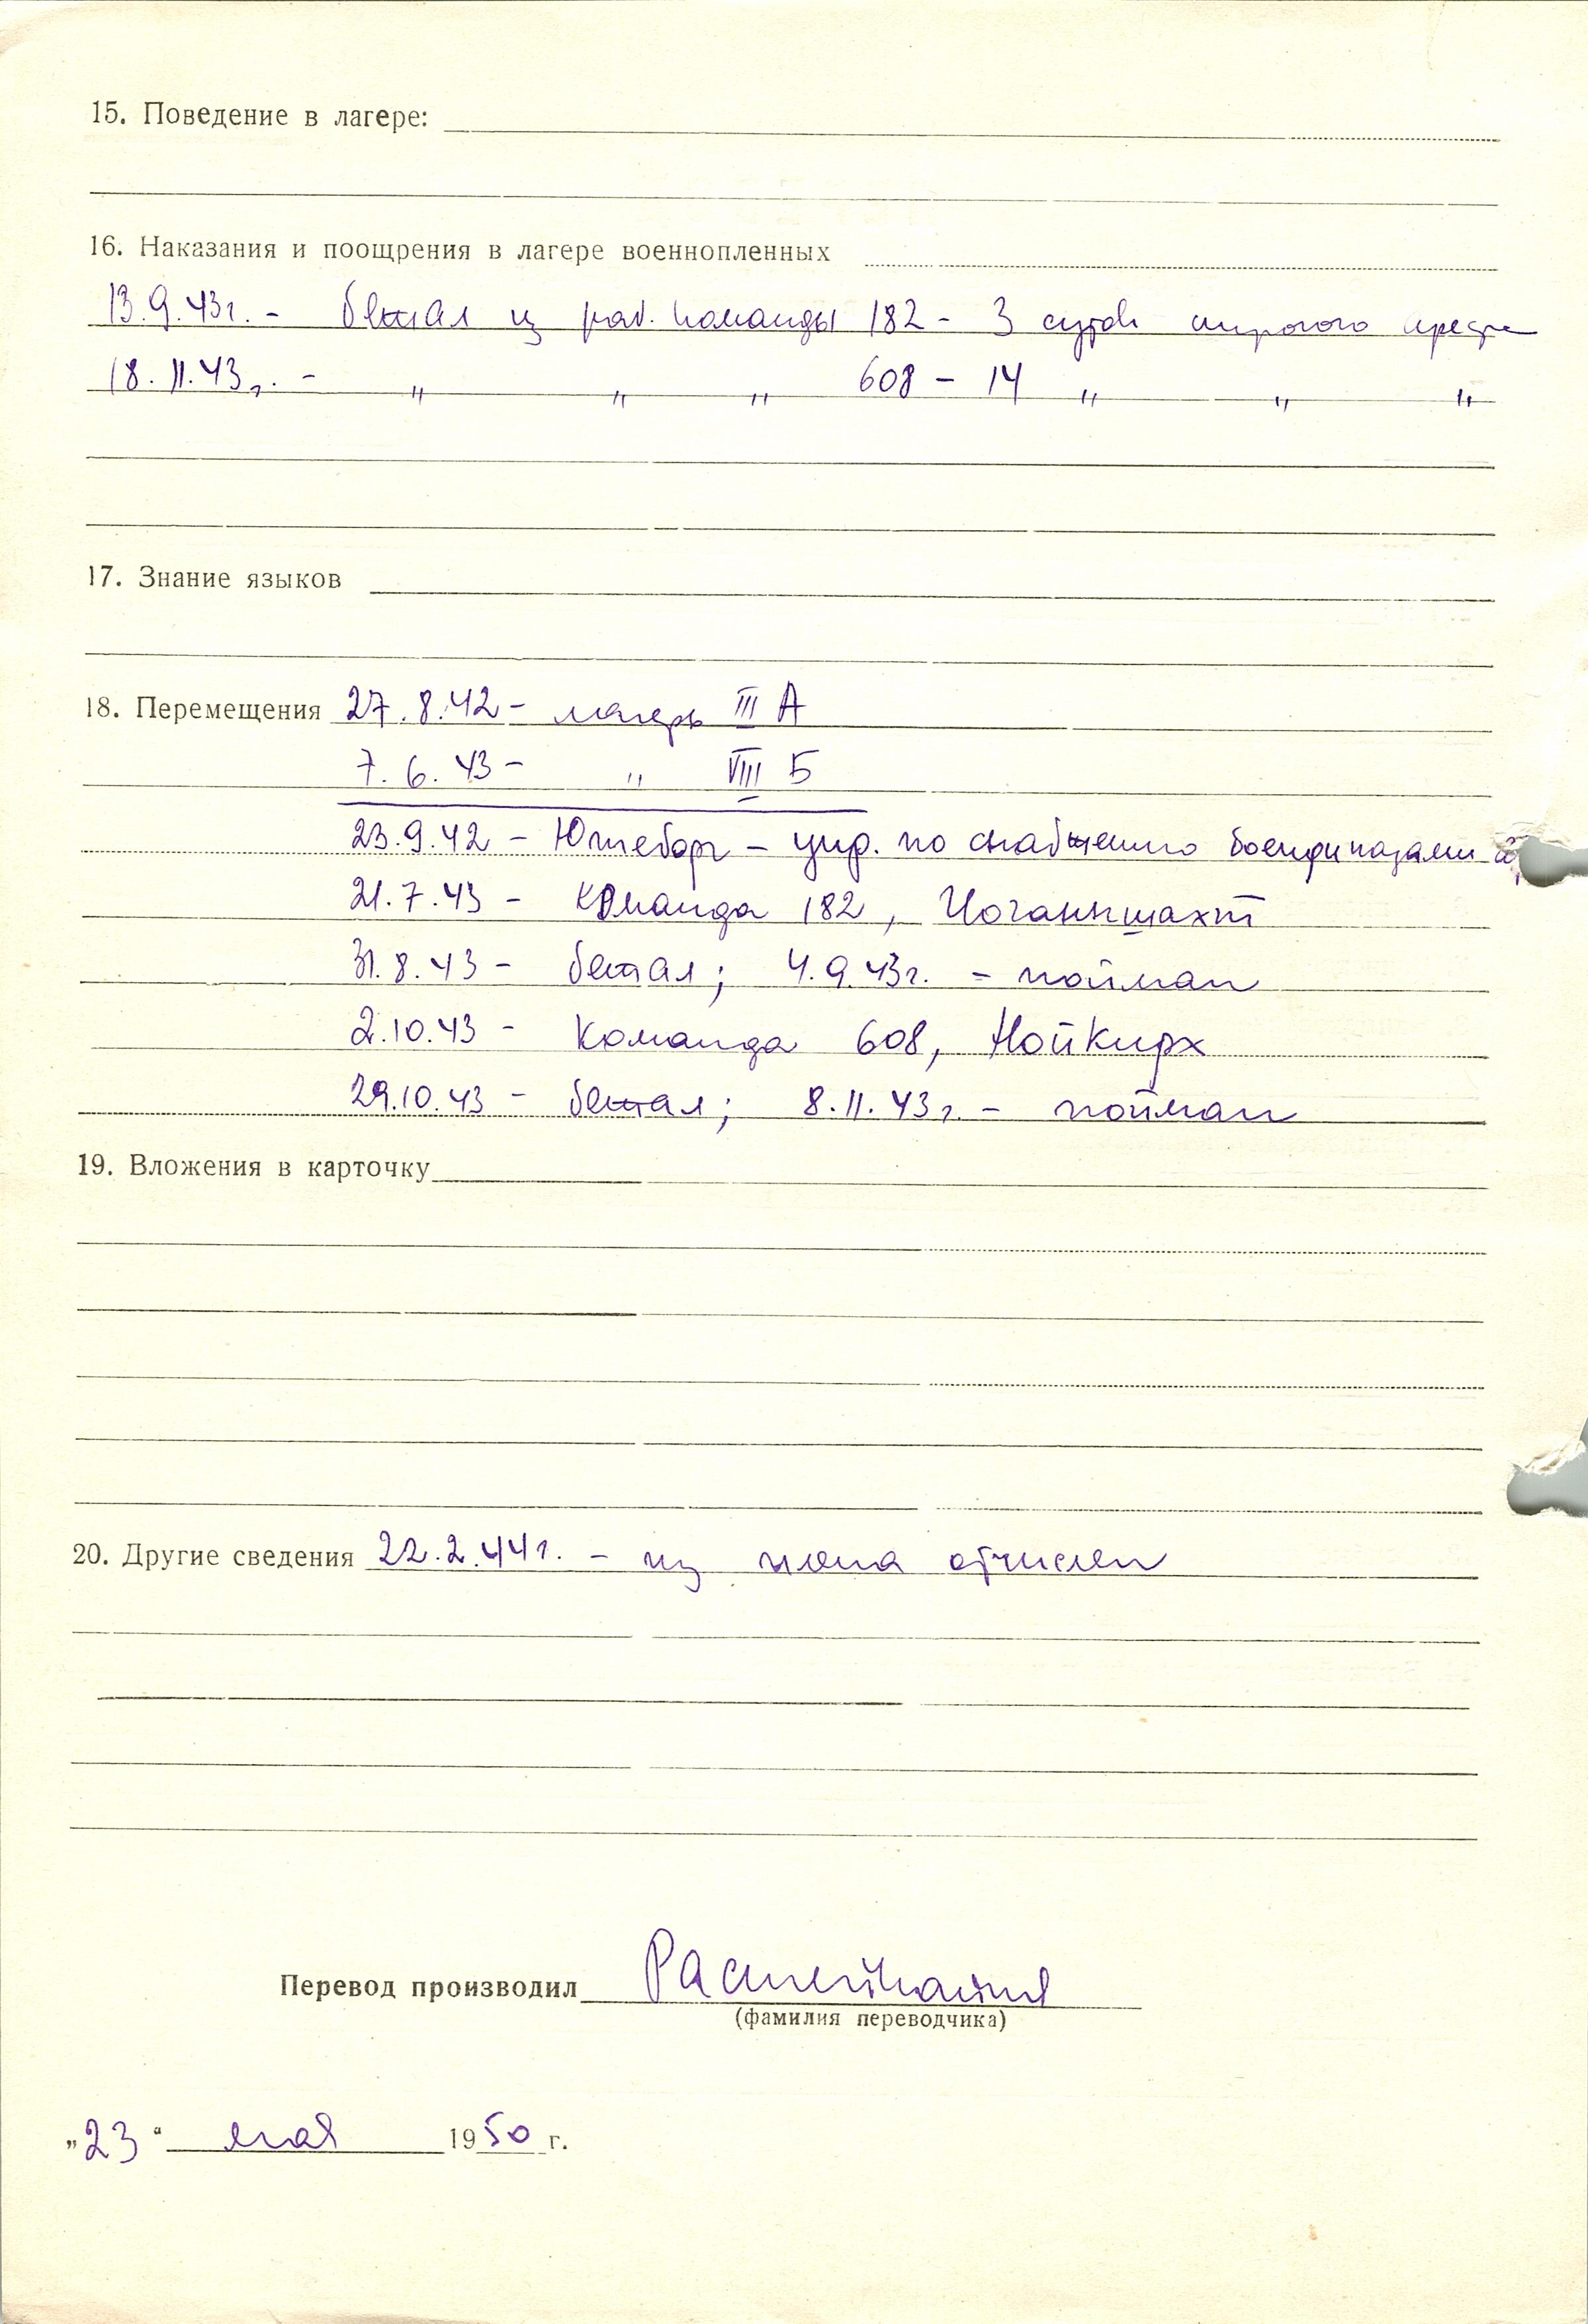 15. Поведение в лагере:
16. Наказания и поощрения в лагере военнопленных
13.9.43г. - бежал из раб. команды 182 - 3 суток строгого ареста
18.11.43г. - " " " 608 - 14 " " "
17. Знание языков
18. Перемещения 27.8.42 - лагерь III А
7.6.43 - " VIII Б
23.9.42 - Ютеборг - упр. по снабжению боеприпасами
21.7.43 - Команда 182, Иоганншахт
31.8.43 - бежал; 4.9.43г. - пойман
2.10.43 - Команда 608, Нойкирх
29.10.43 - бежал; 8.11.43г. - пойман
19. Вложения в карточку
20. Другие сведения 22.2.44г. - из плена отчислен
Перевод производил
(фамилия переводчика)
„23“ мая 1950 г.